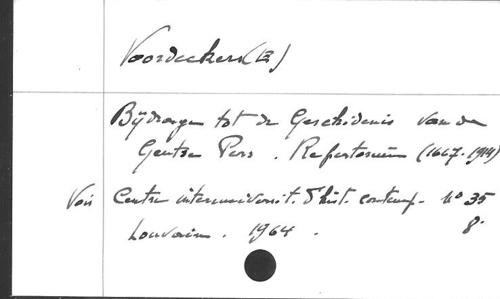 Voordeckers (E)
Bijdragen tot de Geschidenis van de
Gentse Pers. Repertorium (1667-1914)
Voir Centre interuniversit. d'hist. contemp. n° 35
Louvain. 1964. 8°